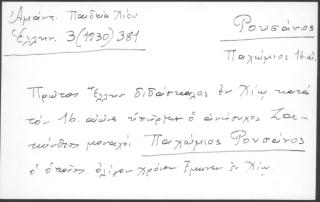 Ἀμάντ. Παιδεία Χίου
Ἑλλην. 3(1930) 381
Ρουσάνος
Παχώμιος 16 αἰ.
Πρῶτος Ἕλλην διδάσκαλος ἐν Χίῳ κατὰ
τὸν 16 αἰῶνα ὑπῆρξεν ὁ ἀνήσυχος Ζα-
κύνθιος μοναχὸς Παχώμιος Ρουσάνος
ὁ ὁποῖος ὀλίγον χρόνον ἔμεινεν ἐν Χίῳ.